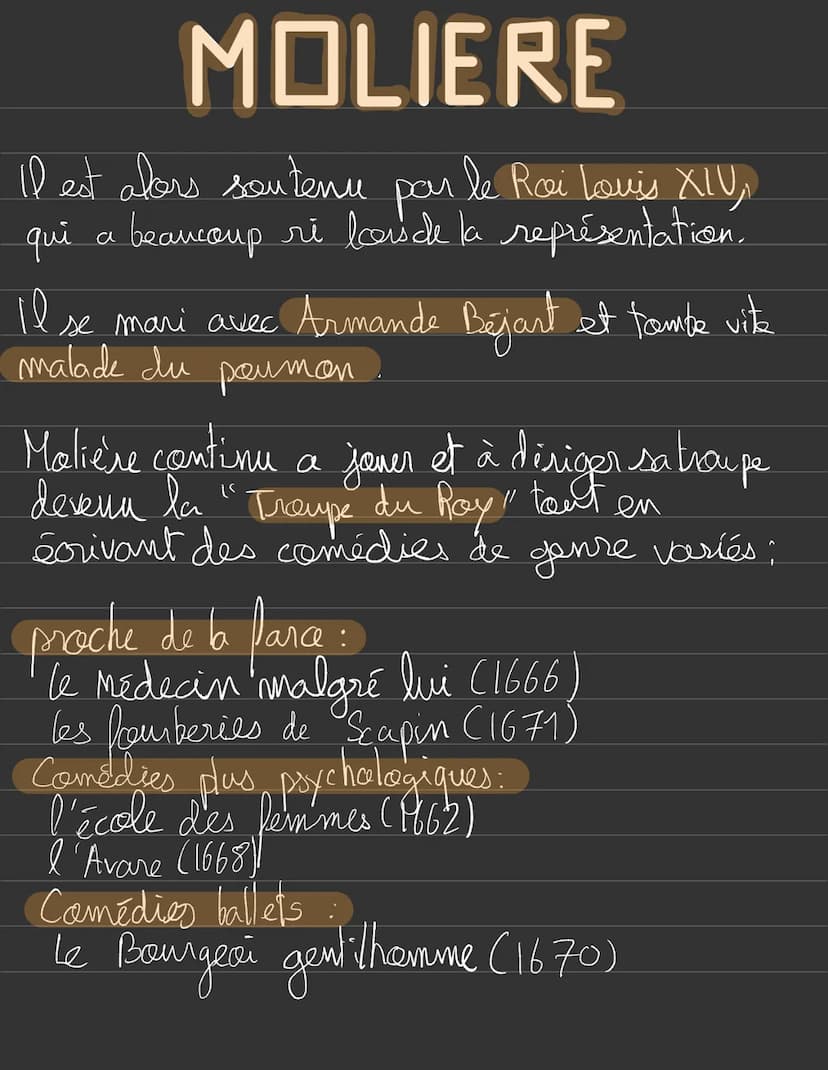 MOLIERE
Il est alors soutenu par le Roi Louis XIV,
qui a beaucoup ri lors de la représentation.
Il se mari avec Armande Béjart et tombe vite
malade du poumon.
Molière continu a jouer et à diriger sa troupe
devenu la "Troupe du Roy" tout en
écrivant des comédies de genre variés :
proche de la farce :
le Médecin malgré lui (1666)
les fourberies de Scapin (1671)
Comédies plus psychologiques :
l'école des femmes (1662)
l'Avare (1668)
Comédies ballets :
Le Bourgeoi gentilhomme (1670)